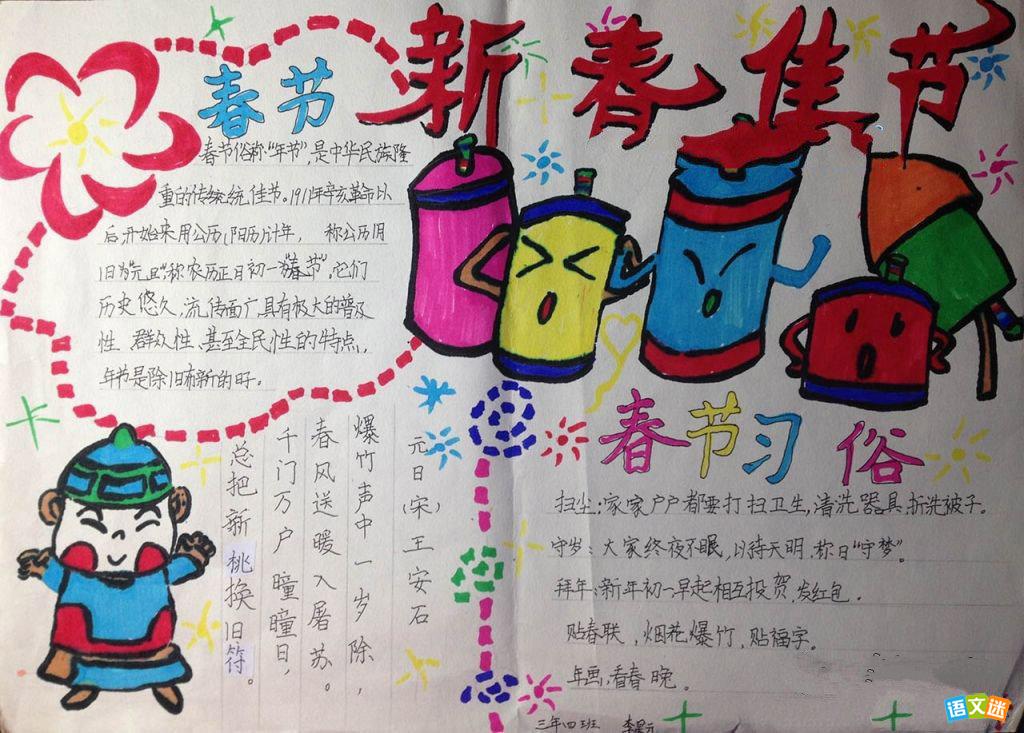 新春佳节
春节
春节俗称“年节”,是中华民族隆
重的传统统佳节。1911年辛亥革命以
后,开始采用公历(阳历)计年, 称公历1月
1日为“元旦”,称农历正月初一为“春节”,它们
历史悠久,流传面广,具有极大的普及
性、群众性、甚至全民性的特点,
年节是除旧布新的日子。
元日(宋)王安石
爆竹声中一岁除,
春风送暖入屠苏。
千门万户曈曈日,
总把新桃换旧符。
春节习俗
扫尘:家家户户都要打扫卫生,清洗器具,拆洗被子。
守岁:大家终夜不眠,以待天明,称曰“守梦”。
拜年:新年初一早起相互投贺,发红包。
贴春联,烟花爆竹,贴福字。
年画,看春晚。
三年四班 李
语文迷